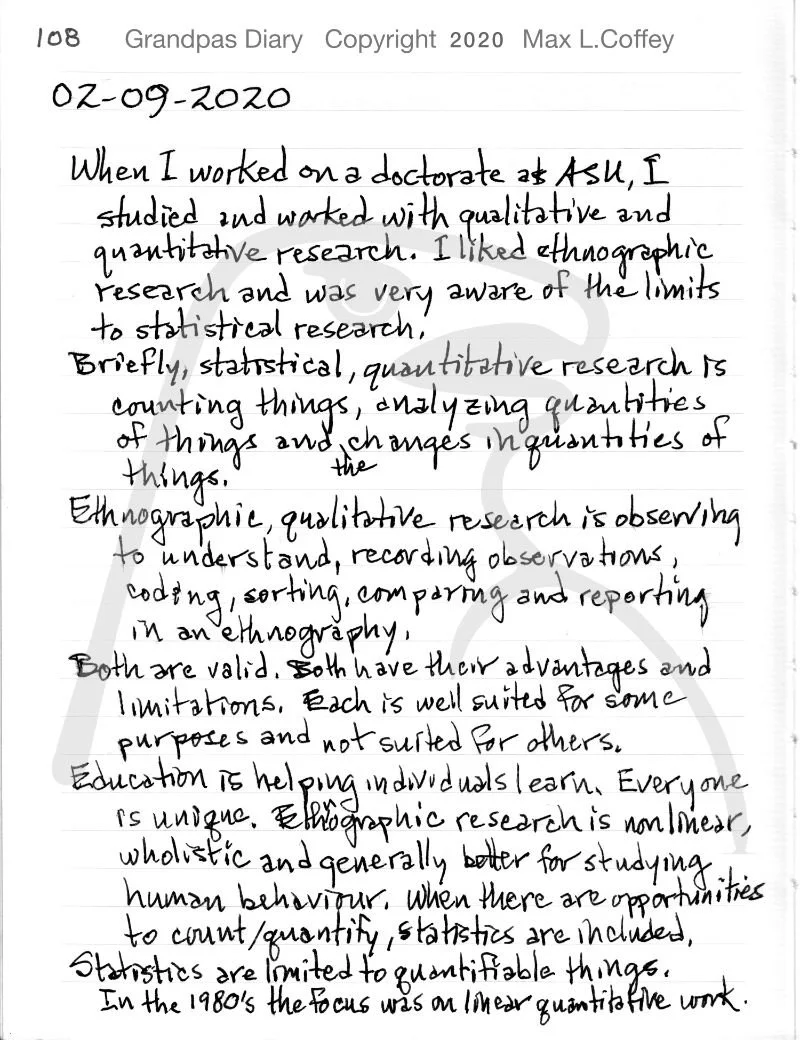 108 Grandpas Diary Copyright 2020 Max L.Coffey
02-09-2020
When I worked on a doctorate at ASU, I
studied and worked with qualitative and
quantitative research. I liked ethnographic
research and was very aware of the limits
to statistical research.
Briefly, statistical, quantitative research is
counting things, analyzing quantities
of things and changes in quantities of
things. the
Ethnographic, qualitative research is observing
to understand, recording observations,
coding, sorting, comparing and reporting
in an ethnography.
Both are valid. Both have their advantages and
limitations. Each is well suited for some
purposes and not suited for others.
Education is helping individuals learn. Everyone
is unique. Ethnographic research is nonlinear,
wholistic and generally better for studying
human behaviour. When there are opportunities
to count/quantify, statistics are included.
Statistics are limited to quantifiable things.
In the 1980's the focus was on linear quantitative work.